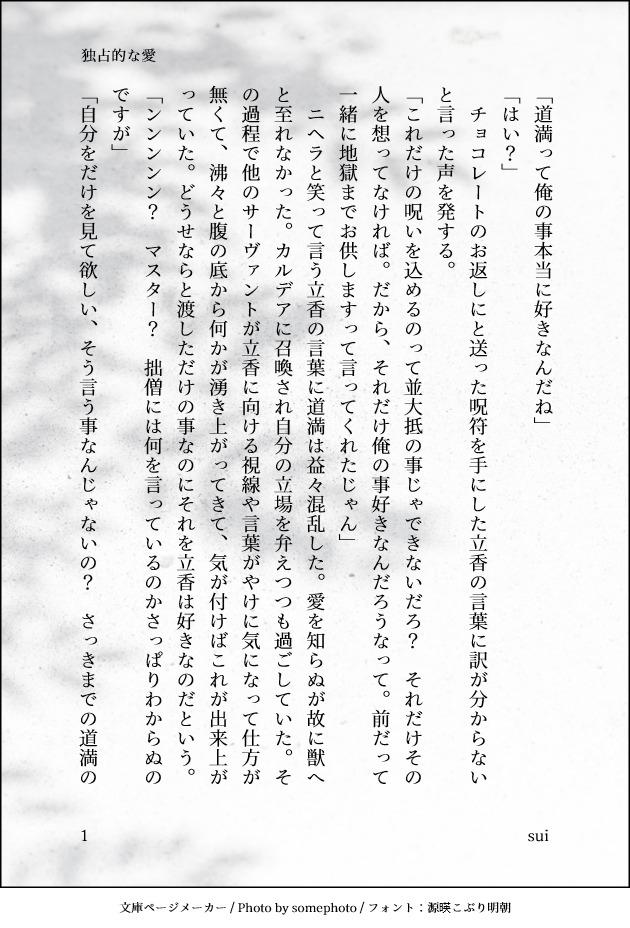 独占的な愛
「道満って俺の事本当に好きなんだね」
「はい？」
　チョコレートのお返しにと送った呪符を手にした立香の言葉に訳が分からない
と言った声を発する。
「これだけの呪いを込めるのって並大抵の事じゃできないだろ？　それだけその
人を想ってなければ。だから、それだけ俺の事好きなんだろうなって。前だって
一緒に地獄までお供しますって言ってくれたじゃん」
　ニヘラと笑って言う立香の言葉に道満は益々混乱した。愛を知らぬが故に獣へ
と至れなかった。カルデアに召喚され自分の立場を弁えつつも過ごしていた。そ
の過程で他のサーヴァントが立香に向ける視線や言葉がやけに気になって仕方が
無くて、沸々と腹の底から何かが湧き上がってきて、気が付けばこれが出来上が
っていた。どうせならと渡しただけの事なのにそれを立香は好きなのだという。
「ンンンンン？　マスター？　拙僧には何を言っているのかさっぱりわからぬの
ですが」
「自分をだけを見て欲しい、そう言う事なんじゃないの？　さっきまでの道満の
1
sui
文庫ページメーカー / Photo by somephoto / フォント：源暎こぶり明朝